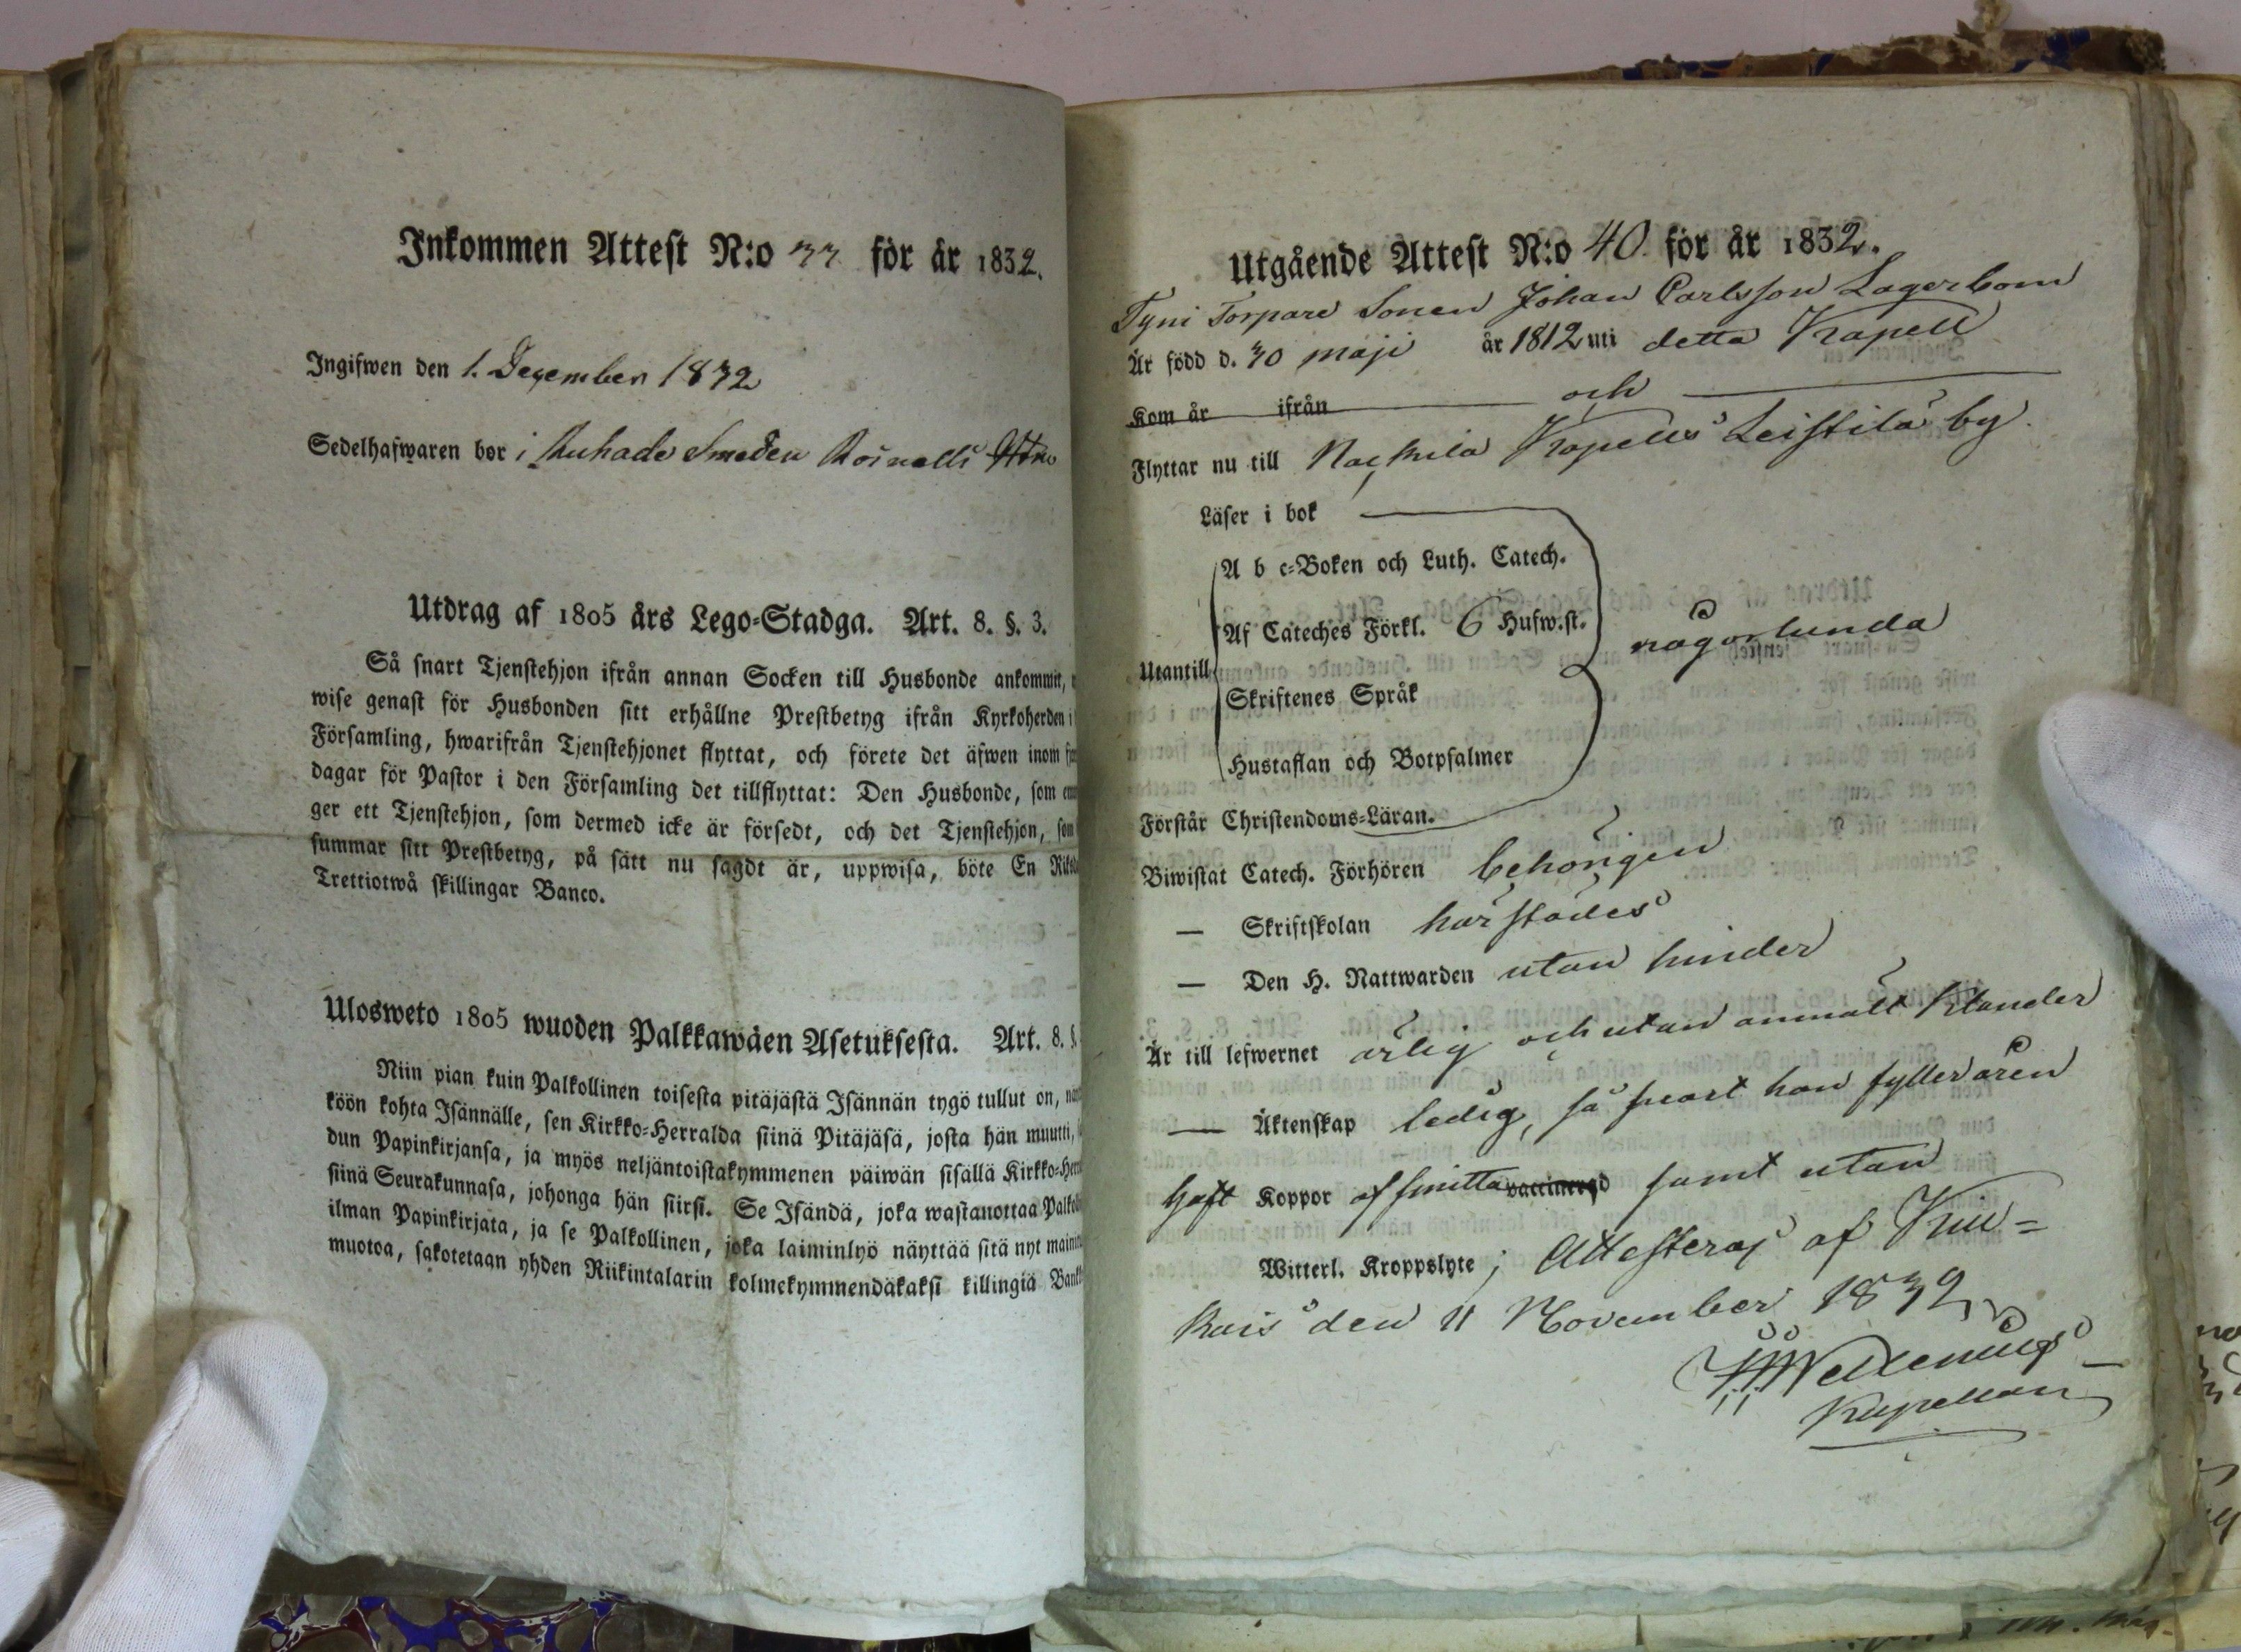 Inkommen Attest N:o 33 för år 1832.
Ingifwen den 1. December 1832
Sedelhafwaren bor i Ruhade Smeden
Utdrag af 1805 års Lego-Stadga. Art. 8. §. 3.
Så snart Tjenstehjon ifrån annan Socken till Husbonde ankommit,
wise genast för Husbonden sitt erhållne Prestbetyg ifrån Kyrkoherden i
Församling, hwarifrån Tjenstehjonet flyttat, och förete det äfwen inom
dagar för Pastor i den Församling det tillflyttat: Den Husbonde, som
ger ett Tjenstehjon, som dermed icke är försedt, och det Tjenstehjon, som
summar sitt Prestbetyg, på sätt nu sagdt är, uppwisa, böte En
Trettiotwå skillingar Banco.
Ulosweto 1805 wuoden Palkkawäen Asetuksesta. Art. 8. §.
Niin pian kuin Palkollinen toisesta pitäjästä Isännän tygö tullut on,
köön kohta Isännälle, sen Kirkko-Herralda siinä Pitäjäsä, josta hän muutti,
dun Papinkirjansa, ja myös neljäntoistakymmenen päiwän sisällä Kirkko-
siinä Seurakunnasa, johonga hän siirsi. Se Isändä, joka wastanottaa
ilman Papinkirjata, ja se Palkollinen, joka laiminlyö näyttää sitä nyt
muotoa, sakotetaan yhden Riikintalarin kolmekymmendäkaksi killingiä
Utgående Attest N:o 40. för år 1832.
Tyni Torpare Sonen Johan Carlsson Lagerbom
Är född d. 30 maji år 1812 uti detta Kapell
Kom år ifrån och
Flyttar nu till Nackila Kapells Leistilä by.
Läser i bok
A b c-Boken och Luth. Catech.
Af Cateches Förkl. 6 Hufw.st.
någorlunda
Utantill
Skriftenes Språk
Hustaflan och Botpsalmer
Förstår Christendoms-Läran.
Biwistat Catech. Förhören behörigen
— Skriftskolan härstädes
— Den H. Nattwarden utan hinder
Är till lefwernet ärlig och utan anmält klander
— Äktenskap ledig, så snart han fyller åren
haft Koppor af smitta vaccinerad samt utan
Witterl. Kroppslyte; Attesteras af Kiu=
kais den 11 November 1832
Kapellan